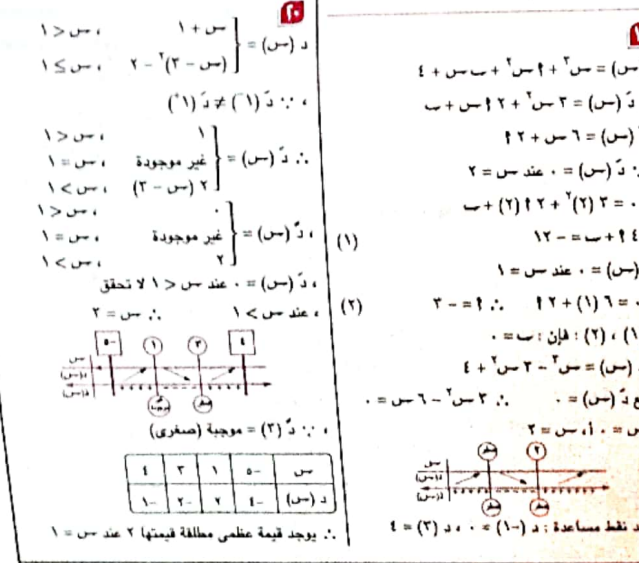 (س) = س³ + ٢س² + ب س + ٤
دَ (س) = ٣ س² + ٢ ٢ س + ب
(س) = ٦ س + ٢ ٢
دَ (س) = ٠ عند س = ٢
٠ = ٣ (٢)² + ٢ ٢ (٢) + ب
٤ ٢ + ب = -١٢ (١)
(س) = ٠ عند س = ١
٠ = ٦ (١) + ٢ ٢ ∴ ٢ = -٣ (٢)
(١) ، (٢) : فإن : ب = ٠
(س) = س³ - ٣ س² + ٤
دَ (س) = ٠ ∴ ٣ س² - ٦ س = ٠
س = ٠ أ، س = ٢
صفر ٢
س
دَ(س)
د(س)
صفر صفر
نقط مساعدة : د (-١) = ٠ ، د (٣) = ٤
٢٠
د (س) = { س + ١ ، س < ١
(س - ٣)² - ٢ ، س ≥ ١
، ∵ دَ (١⁻) ≠ دَ (١⁺)
∴ دَ (س) = { ١ ، س < ١
غير موجودة ، س = ١
٢ (س - ٣) ، س > ١
، دً (س) = { ٠ ، س < ١
غير موجودة ، س = ١
٢ ، س > ١
، دَ (س) = ٠ عند س < ١ لا تحقق
، عند س > ١ ∴ س = ٣
-٥ ١ ٣ ٤
س
دَ(س)
د(س)
غير موجودة صفر
، ∵ دً (٣) = موجبة (صغرى)
س -٥ ١ ٣ ٤
د (س) -٤ ٢ -٢ -١
∴ يوجد قيمة عظمى مطلقة قيمتها ٢ عند س = ١